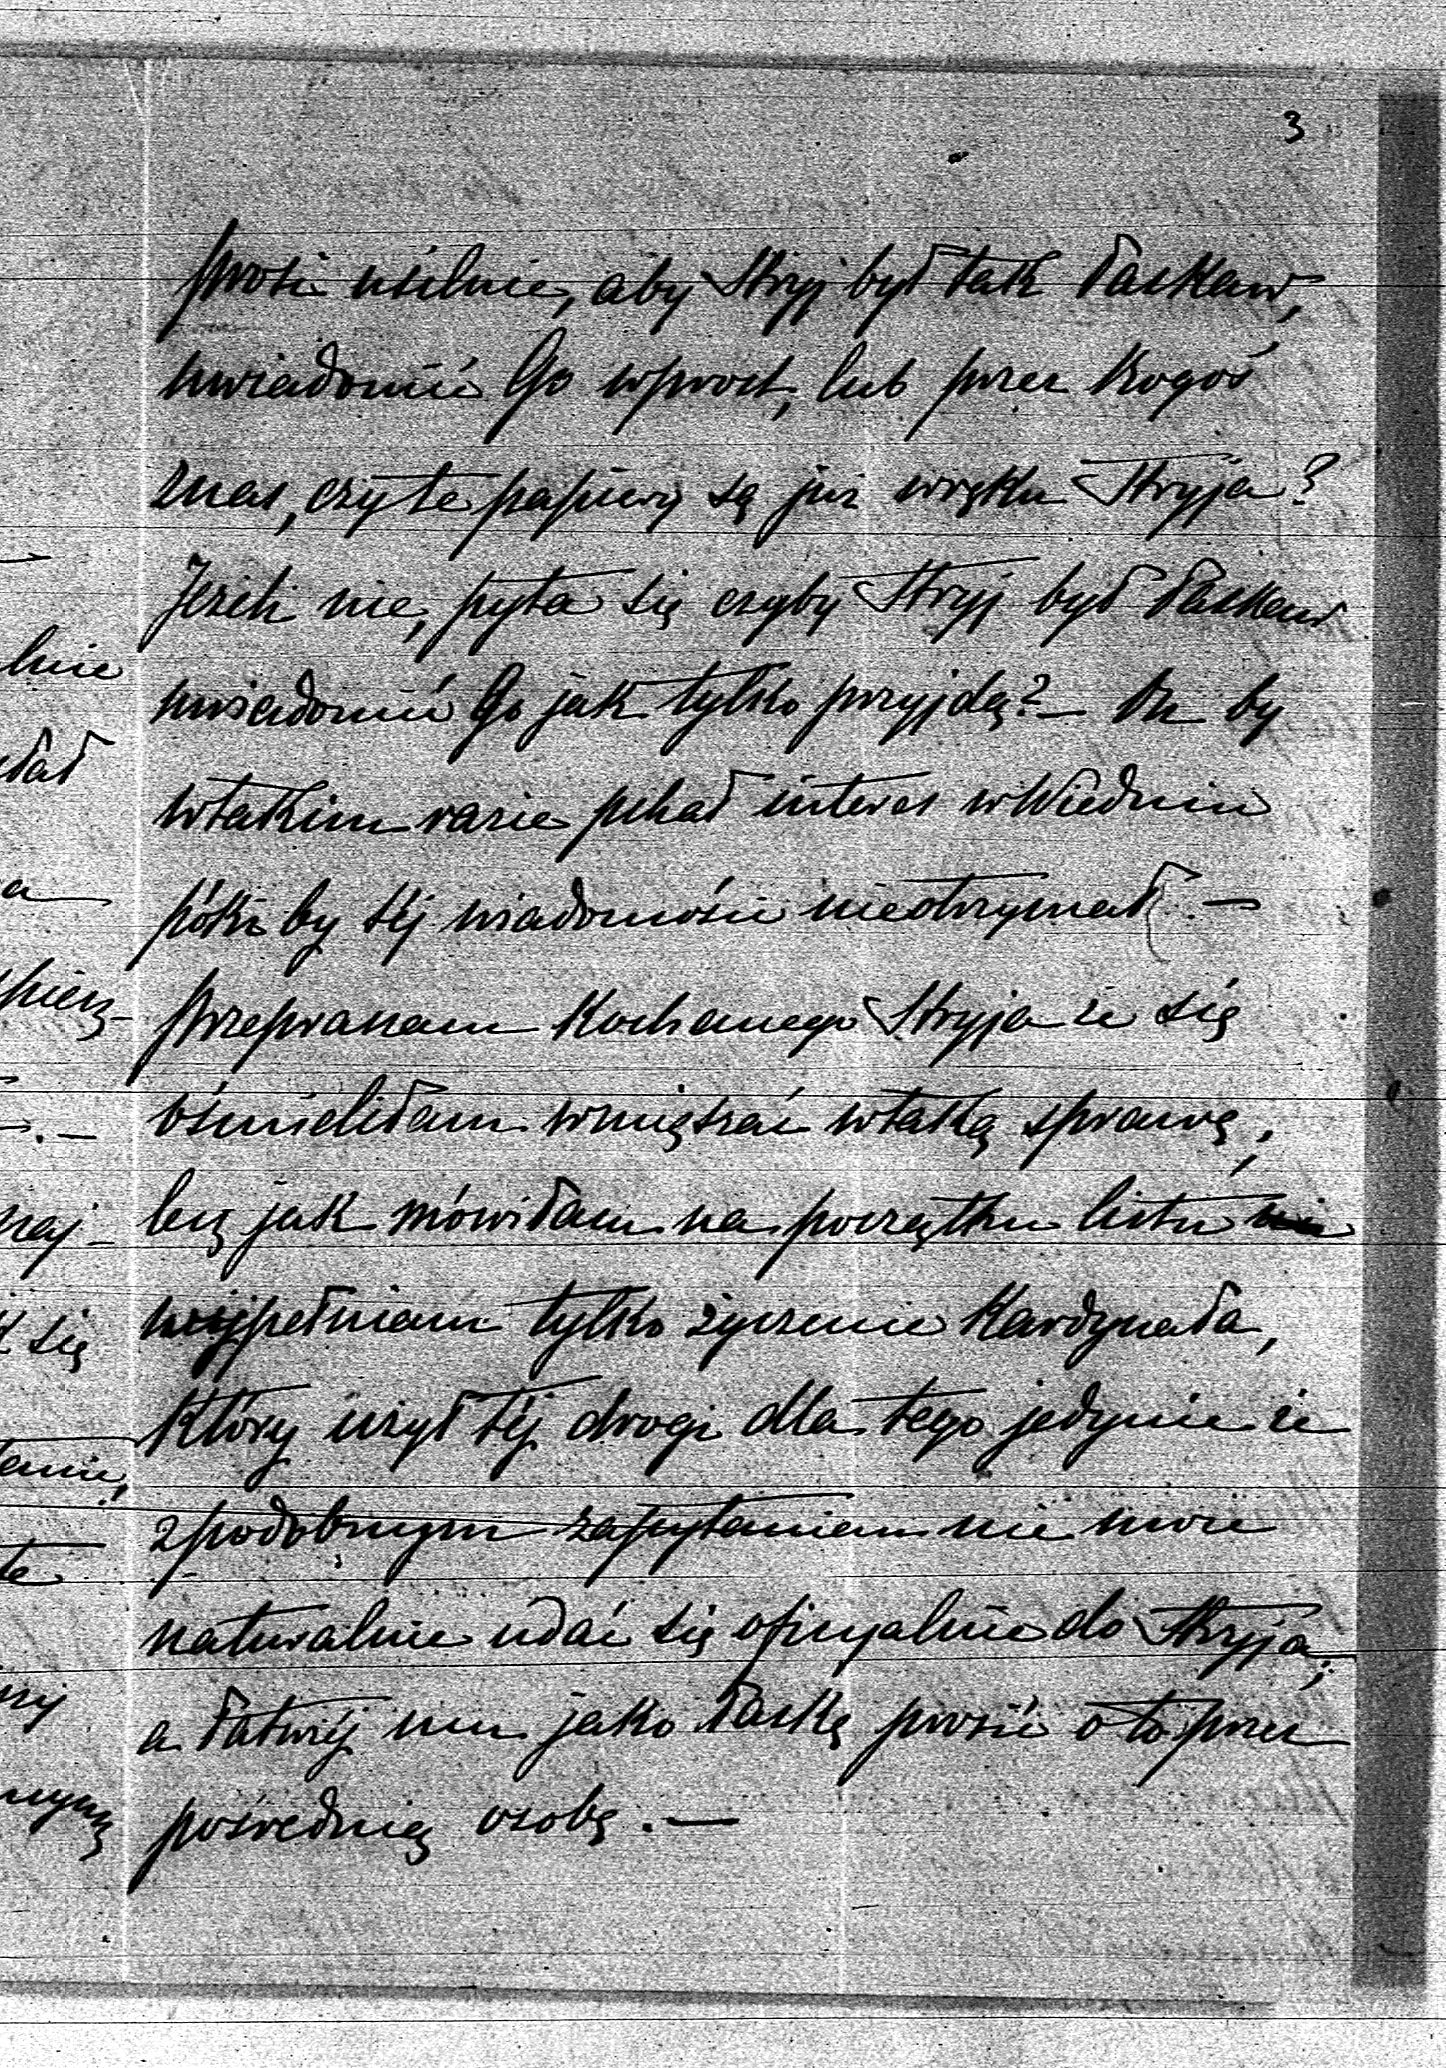 3
prosi usilnie, aby Stryj był tak łaskaw,
uwiadomić Go wprost, lub przez kogoś
znas, czy te papiery są już wręku Stryja?
Jeżeli nie, pyta się czyby Stryj był łaskaw
uwiadomić Go jak tylko przyjdą? — On by
wtakim razie pchał interes w Wiedniu
póki by téj wiadomości nieotrzymał —
Przepraszam Kochanego Stryja że się
ośmieliłam wmięszać wtaką sprawę,
lecz jak mówiłam na początku listu
wypełniam tylko życzenie Kardynała,
który użył téj drogi dla tego jedynie że
z podobnym zapytaniem nie może
naturalnie udać się oficyalnie do Stryja,
a łatwiéj mu jako łaskę prosić o to przez
pośrednią osobę. —
lnie
dał
a
pierz-
naj-
się
anie,
te
nyną